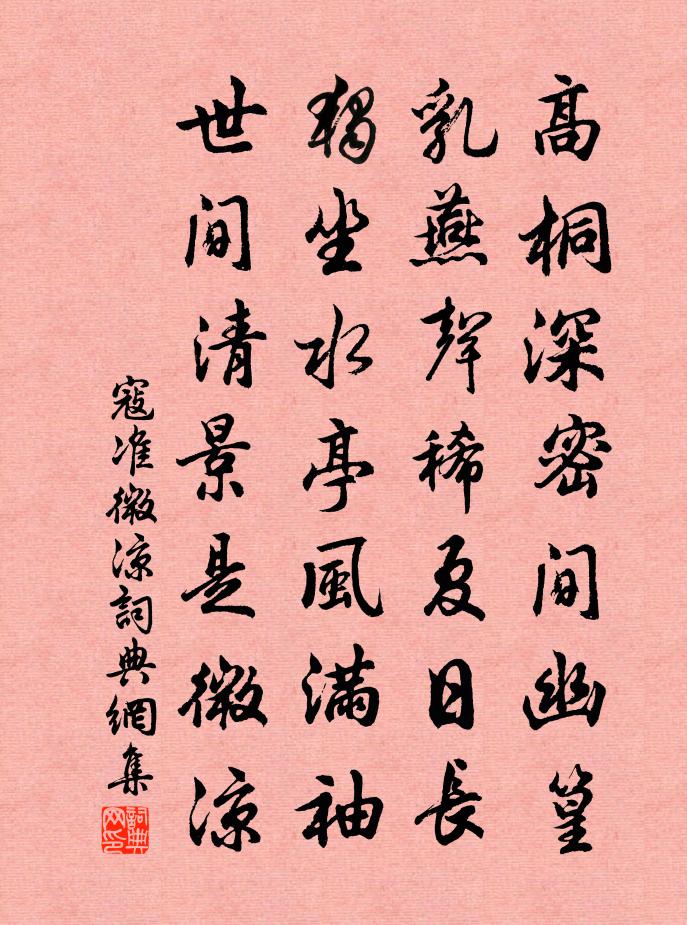 高桐深密间幽篁
乳燕聲稀夏日長
獨坐水亭風满袖
世间清景是微凉
寇准微凉詞典網集
詞典网印